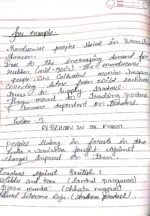 for example:
Mundurucu peoples lived in Brazilian
Amazon.
Due to the increasing demand for
rubber (mid-90th) the Mundurucu
people (who cultivated manioc) began
collecting latex from rubber
to supply traders.
They moved to trading
& became dependent on traders.
REBELLION IN THE FOREST
Peoples living in forests in
India against
changes imposed on them.
Leaders against British:
Siddhu and Kanu (Santhal Parganas)
Birsa Munda (Chhota Nagpur)
Alluri Sitarama Raju (Andhra Pradesh)